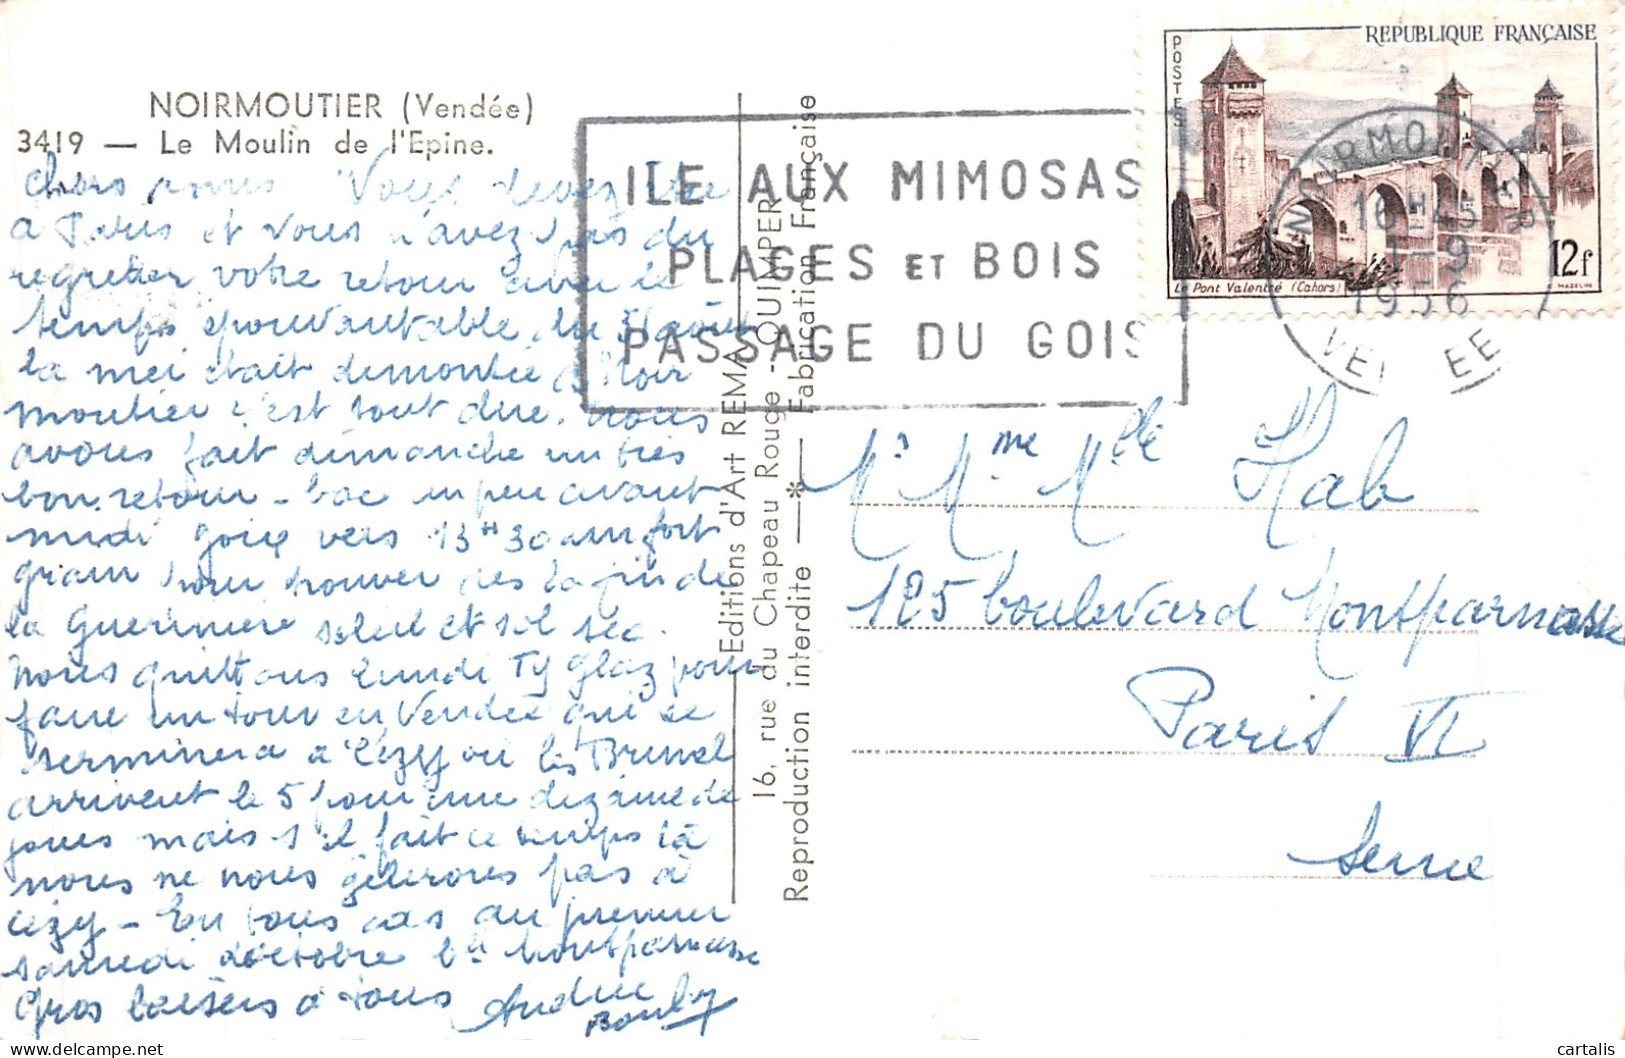 NOIRMOUTIER (Vendée)
3419 — Le Moulin de l'Epine.
Chers amis Vous devez être
à Paris et vous n'avez pas du
regretter votre retour avec le
temps épouvantable du 31 août
la mer était démontée à Noir
moutier c'est tout dire. Nous
avons fait dimanche un très
bon retour - bac un peu avant
midi gois vers 13H30 un fort
grain pour trouver dès la fin de
la Guérinière soleil et sol sec.
Nous quittons lundi Ty Glaz pour
faire un tour en Vendée qui se
terminera à Cézy où les Brunel
arrivent le 5 pour une dizaine de
jours mais s'il fait ce temps là
nous ne nous gèlerons pas à
Cézy - En tous cas au premier
samedi d'octobre Bd Montparnasse
Gros baisers à tous Andrée
Editions d'Art REMA
16, rue du Chapeau Rouge - QUIMPER
Reproduction interdite — * — Fabrication Française
ILE AUX MIMOSAS
PLAGES ET BOIS
PASSAGE DU GOIS
POSTES
REPUBLIQUE FRANÇAISE
Le Pont Valentré (Cahors)
12f
MAZELIN
NOIRMOUTIER
16H45
1-9
1956
VENDEE
Mr Mme Melle Hab
125 boulevard Montparnasse
Paris VI
Seine
cartalis